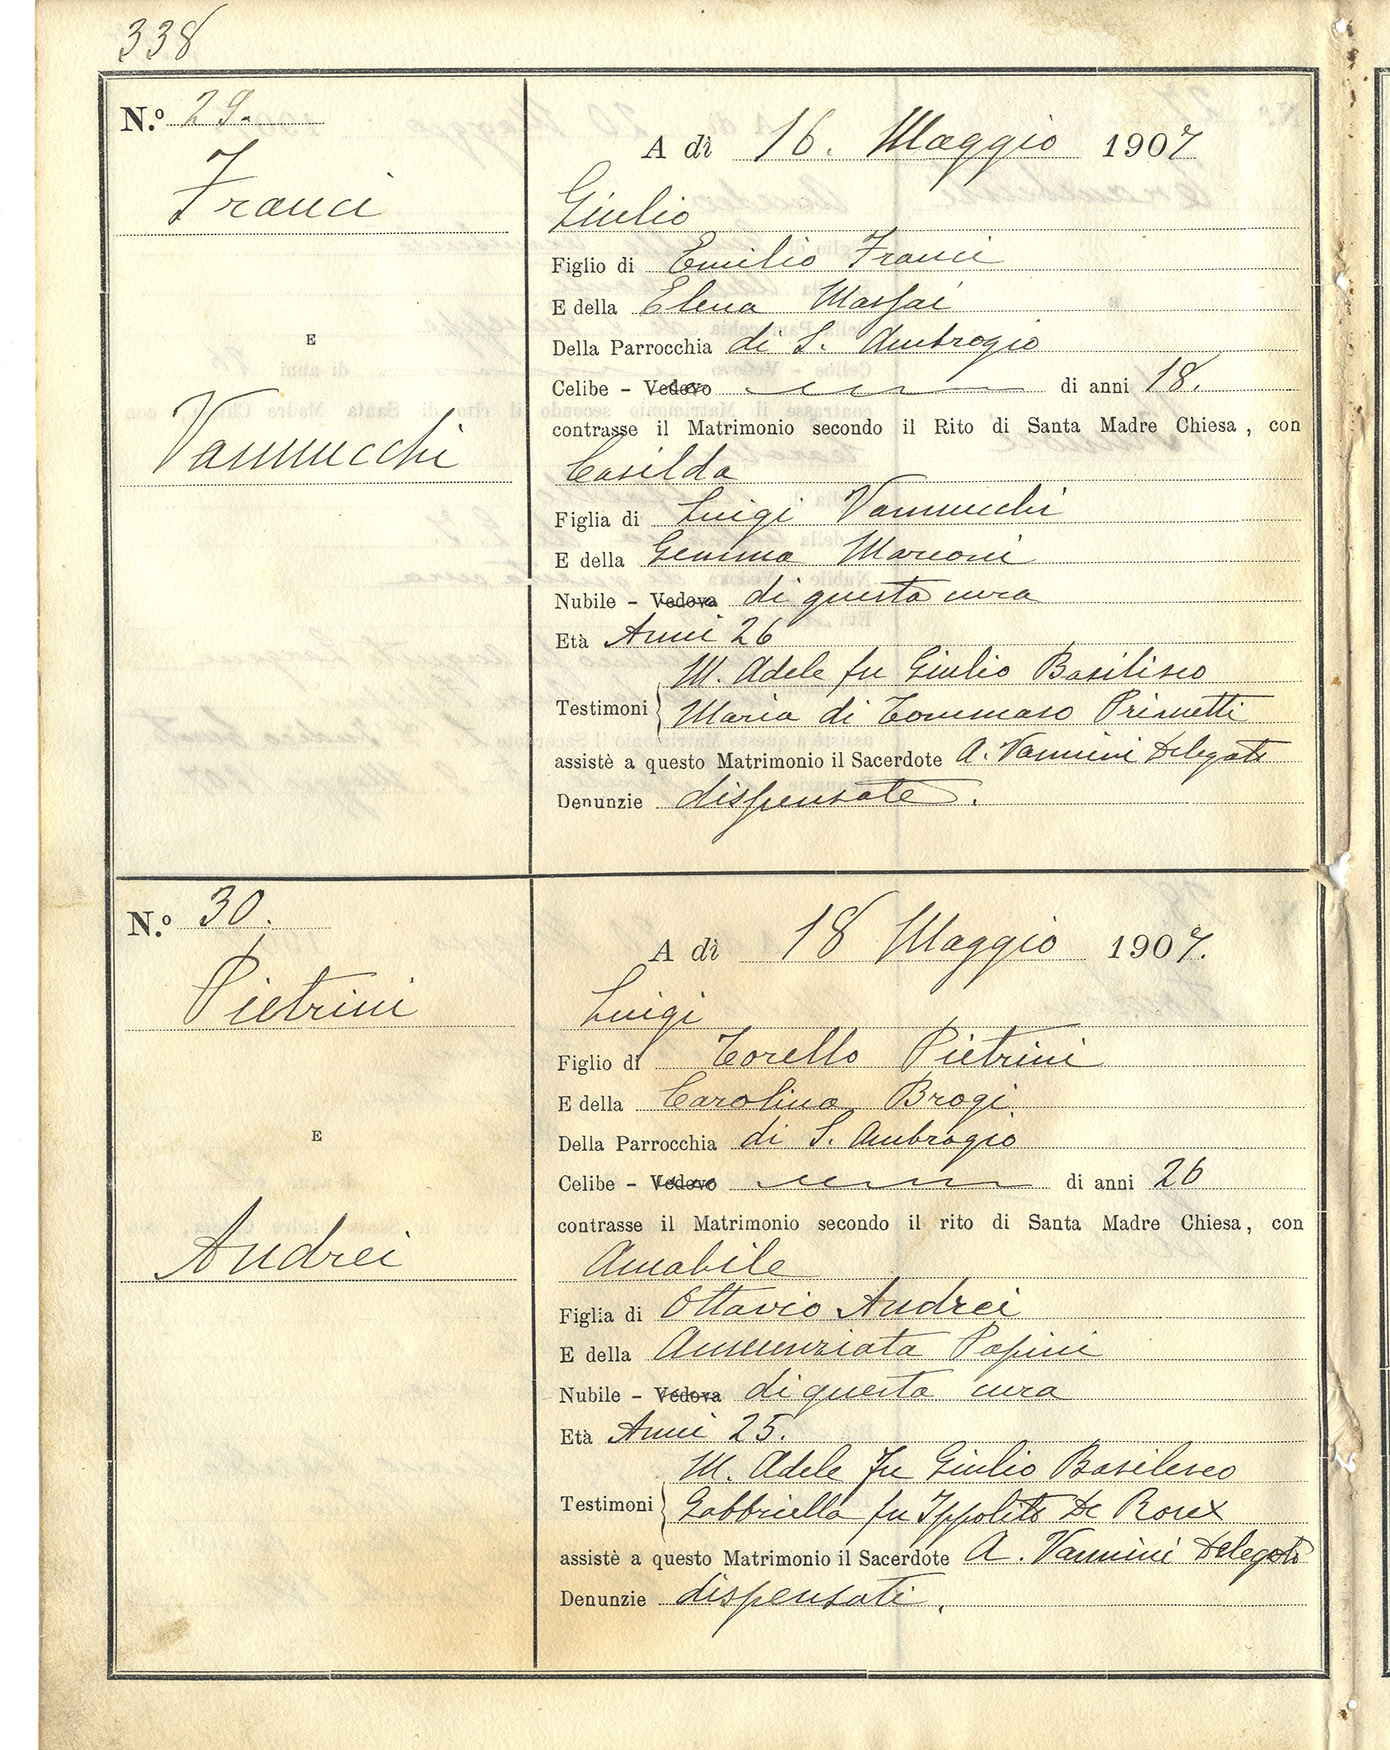 338
N.º 29.
Franci
E
Vannucchi
A dì 16. Maggio 1907
Giulio
Figlio di Emilio Franci
E della Elena Massai
Della Parrocchia di S. Ambrogio
Celibe - Vedovo di anni 18.
contrasse il Matrimonio secondo il Rito di Santa Madre Chiesa, con
Casilda
Figlia di Luigi Vannucchi
E della Gemma Marconi
Nubile - Vedova di questa cura
Età Anni 26
M. Adele fu Giulio Basilisco
Testimoni Maria di Tommaso Prinetti
assistè a questo Matrimonio il Sacerdote A. Vannini Delegato
Denunzie dispensate.
N.º 30.
Pietrini
E
Andrei
A dì 18 Maggio 1907.
Luigi
Figlio di Torello Pietrini
E della Carolina Brogi
Della Parrocchia di S. Ambrogio
Celibe - Vedovo di anni 26
contrasse il Matrimonio secondo il rito di Santa Madre Chiesa, con
Amabile
Figlia di Ottavio Andrei
E della Annunziata Papini
Nubile - Vedova di questa cura
Età Anni 25.
M. Adele fu Giulio Basilisco
Testimoni Gabbriella fu Ippolito De Roux
assistè a questo Matrimonio il Sacerdote A. Vannini Delegato
Denunzie dispensati.